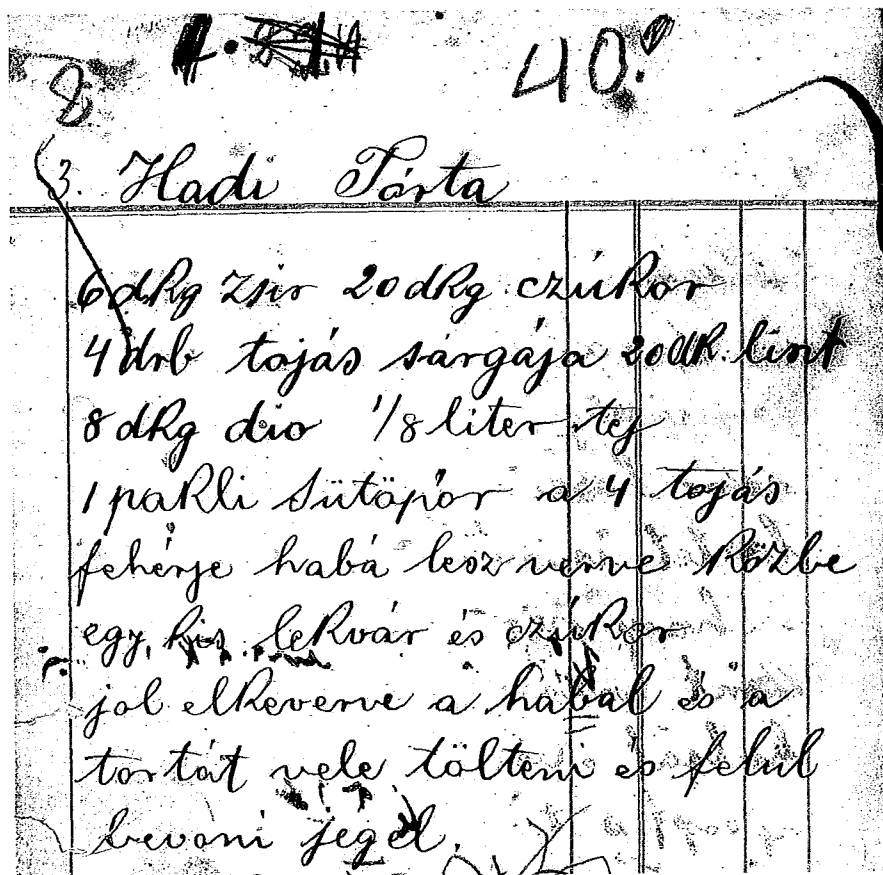 40.
8
3. Hadi Tórta
6 dkg zsir 20 dkg czúkor
4 drb tojás sárgája 20 dk. liszt
8 dkg dio 1/8 liter tej
1 pakli sütöpor a 4 tojás
fehérje habá lesz verve közbe
egy kis lekvár és czúkor
jol elkeverve a habal és a
tortát vele tölteni és felül
bevoni jegel.